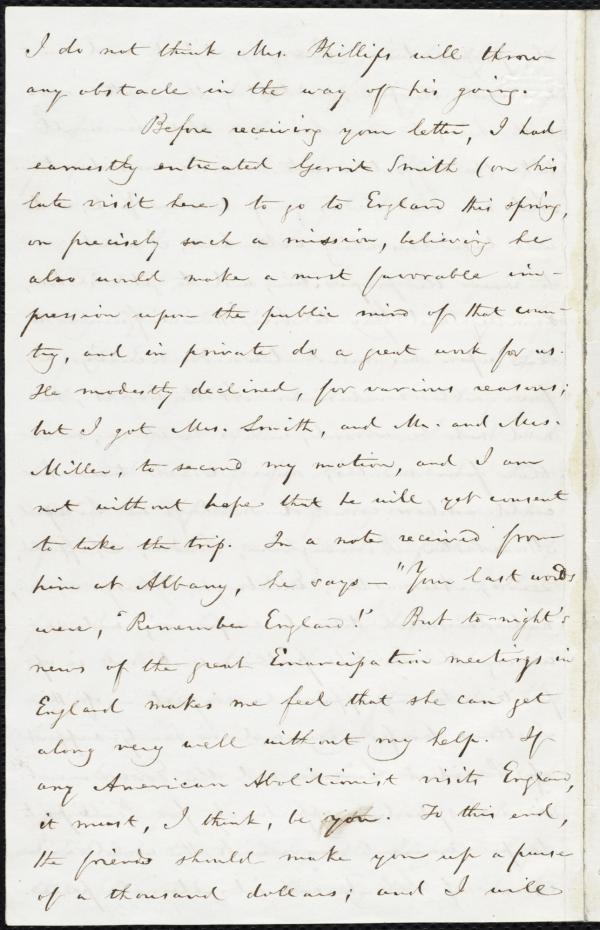 I do not think Mrs. Phillips will throw
any obstacle in the way of his going.
Before receiving your letter, I had
earnestly entreated Gerrit Smith (on his
late visit here) to go to England this spring,
on precisely such a mission, believing he
also would make a most favorable im-
pression upon the public mind of that coun-
try, and in private do a great work for us.
He modestly declined, for various reasons;
but I got Mrs. Smith, and Mr. and Mrs.
Miller, to second my motion, and I am
not without hope that he will yet consent
to take the trip. In a note received from
him at Albany, he says—"Your last words
were, 'Remember England!' But to-night's
news of the great Emancipation meetings in
England makes me feel that she can get
along very well without my help. If
any American Abolitionist visits England,
it must, I think, be you. To this end,
the friends should make you up a purse
of a thousand dollars; and I will